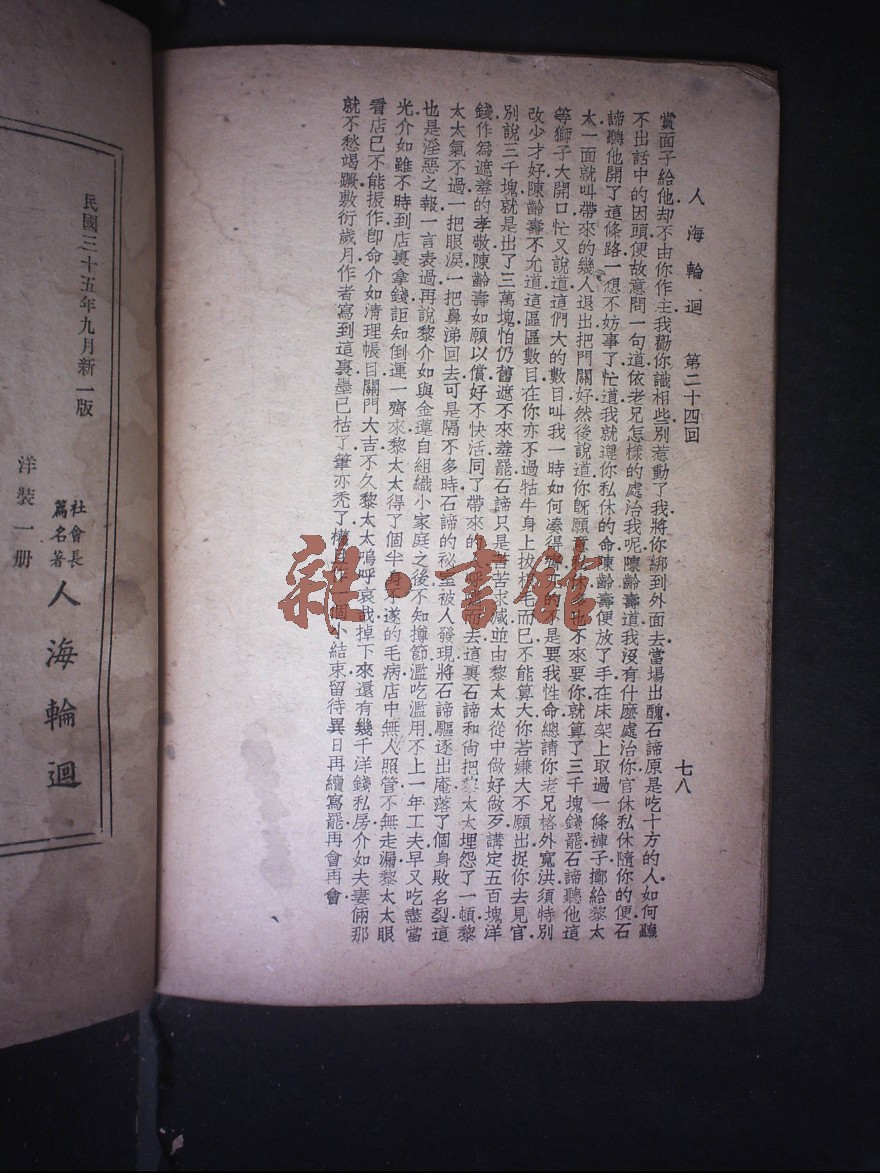 人海輪迴　第二十四回　七八
賞面子給他却不由你作主我勸你識相些別惹動了我將你綁到外面去當場出醜石諦原是吃十方的人如何聽
不出話中的因頭便故意問一句道依老兄怎樣的處治我呢陳齡壽道我沒有什麽處治你官休私休隨你的便石
諦聽他開了這條路一想不妨事了忙道我就遵你私休的命陳齡壽便放了手在床架上取過一條褲子擲給黎太
太一面就叫帶來的幾人退出把門關好然後說道你旣願意私休多也不來要你就算了三千塊錢罷石諦聽他這
等獅子大開口忙又說道這們大的數目叫我一時如何凑得不是要我性命總請你老兄格外寬洪須特別
改少才好陳齡壽不允道這區區數目在你亦不過牯牛身上拔根毛而已不能算大你若嫌大不願出捉你去見官
別說三千塊就是出了三萬塊怕仍舊遮不來羞罷石諦只是苦苦求减並由黎太太從中做好做歹講定五百塊洋
錢作爲遮羞的孝敬陳齡壽如願以償好不快活同了帶來的而去這裏石諦和尙把黎太太埋怨了一頓黎
太太氣不過一把眼淚一把鼻涕回去可是隔不多時石諦的祕室被人發現將石諦驅逐出庵落了個身敗名裂這
也是淫惡之報一言表過再說黎介如與金蓮自組織小家庭之後不知撙節濫吃濫用不上一年工夫早又吃盡當
光介如雖不時到店裏拿錢詎知倒運一齊來黎太太得了個半身不遂的毛病店中無人照管不無走漏黎太太眼
看店已不能振作卽命介如清理帳目關門大吉不久黎太太嗚呼哀哉掉下來還有幾千洋錢私房介如夫妻倆那
就不愁竭蹶敷衍歲月作者寫到這裏墨已枯了筆亦禿了權且作一個小結束留待異日再續寫罷再會再會
民國三十五年九月新一版
社會長篇名著　人海輪迴
洋裝一册
雜·書館